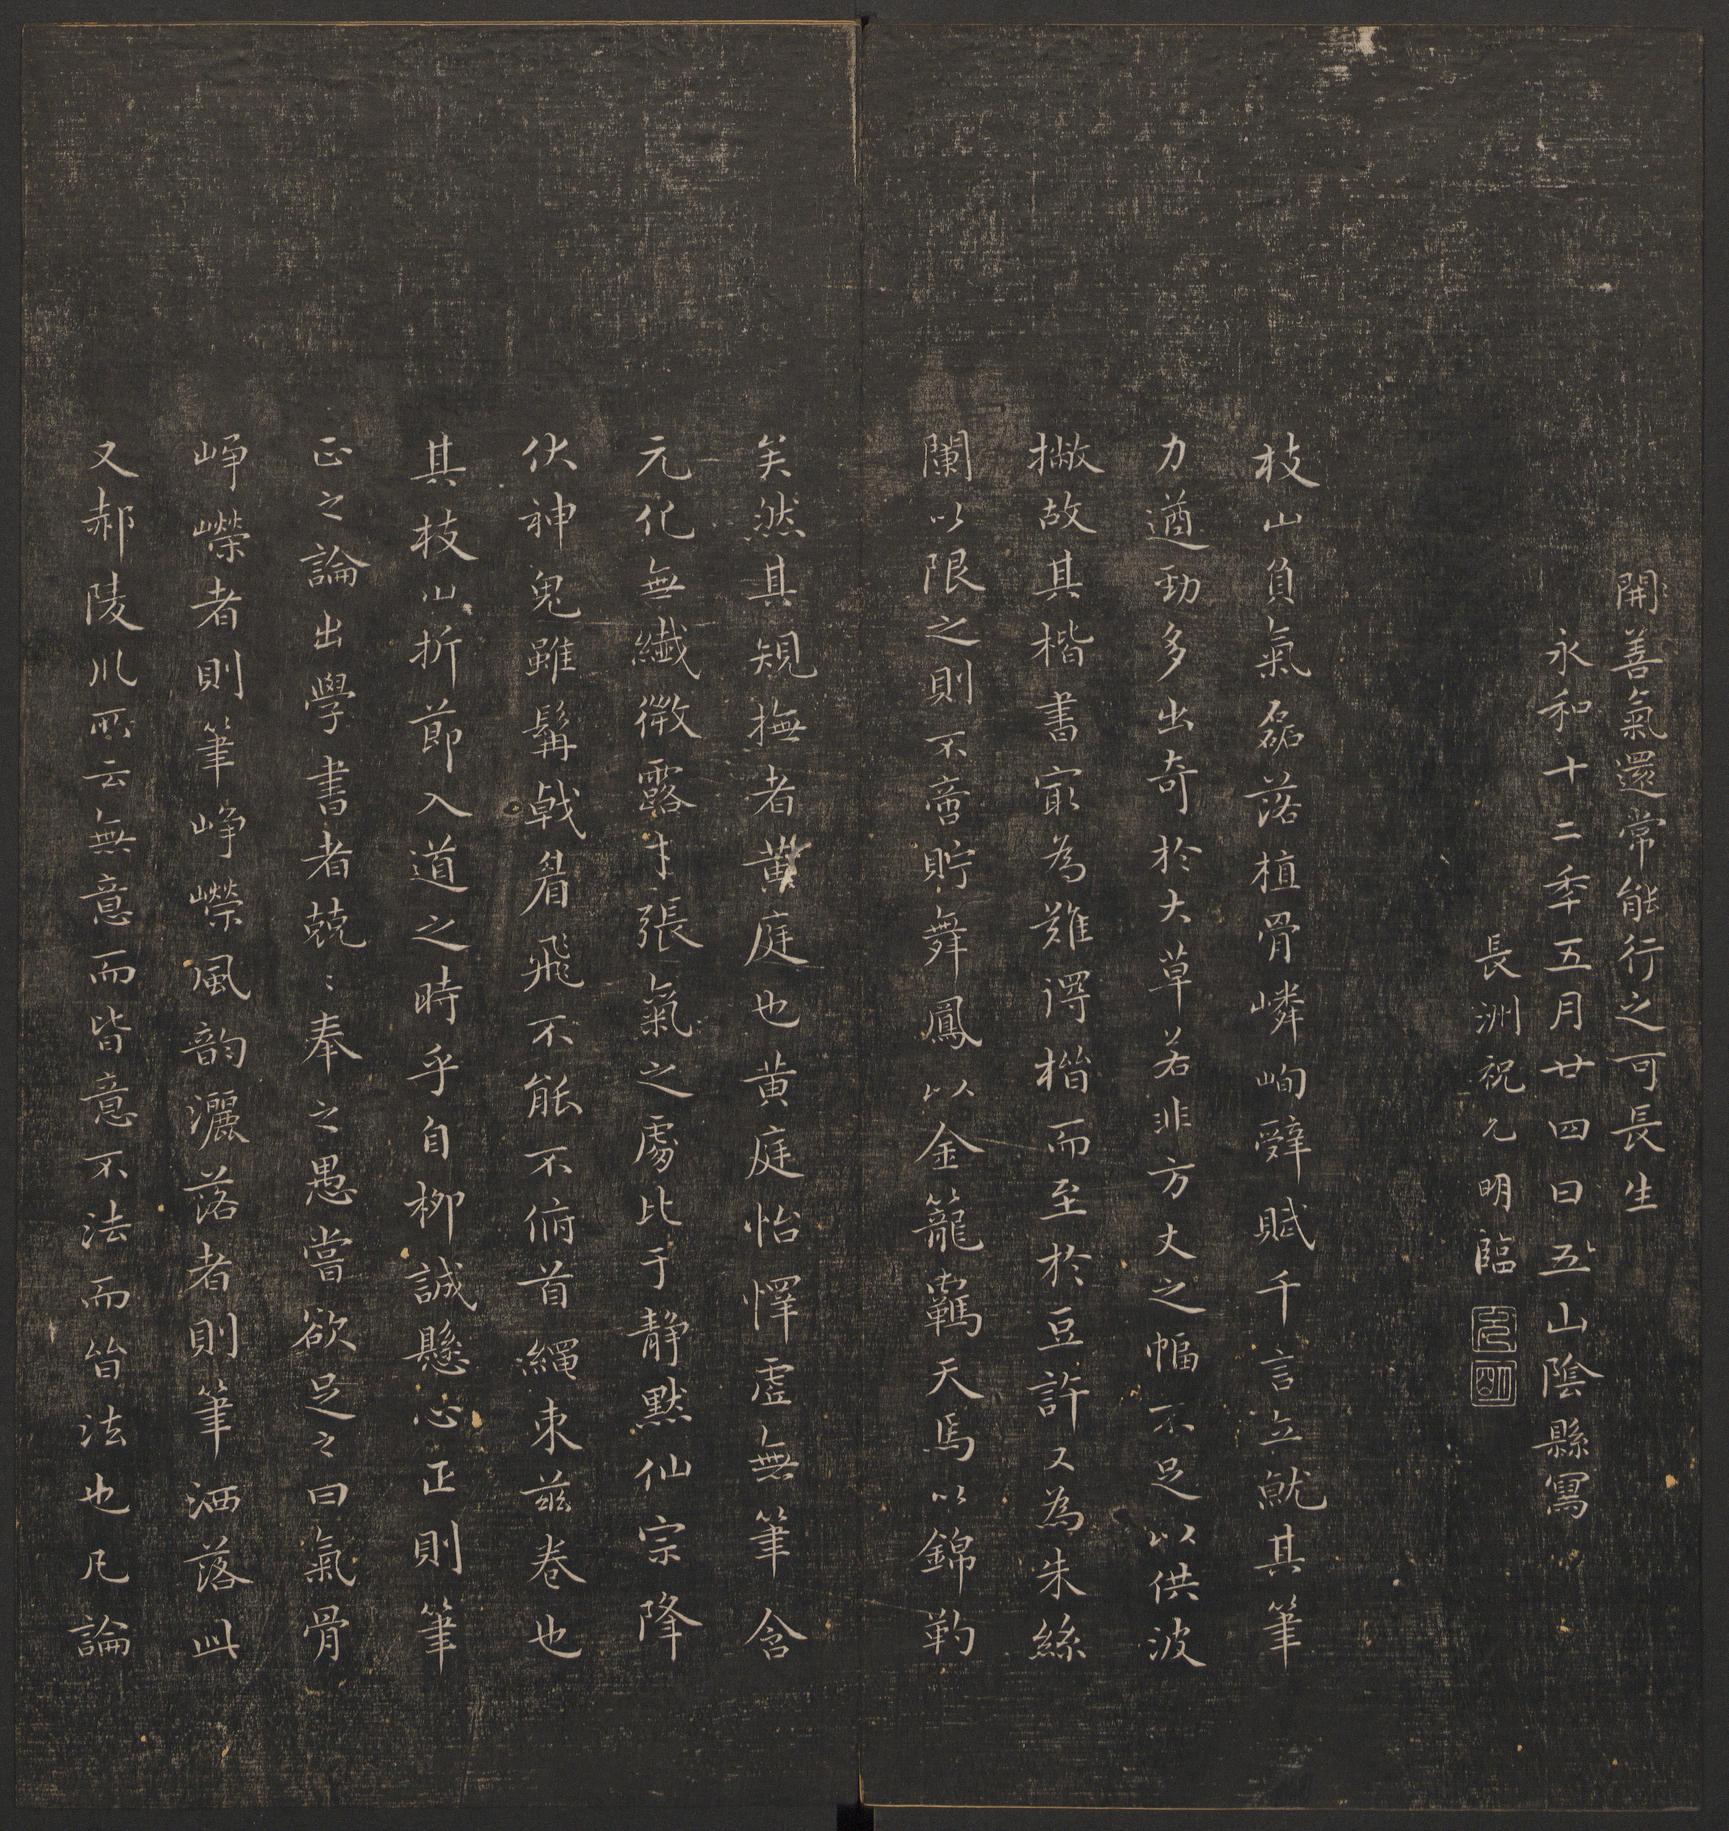 開善氣還常能行之可長生
永和十二年五月廿四日五山陰縣寫
長洲祝允明臨
允明
枝山負氣磊落植骨嶙峋辭賦千言立就其筆
力遒勁多出奇於大草若非方丈之幅不足以供波
撇故其楷書寂為難得楷而至於豆許又為朱絲
闌以限之則不啻貯舞鳳以金籠羈天馬以錦勒
矣然其規撫者黄庭也黄庭怡懌虛無筆含
元化無纖微露才張氣之處比于靜默仙宗降
伏神鬼雖髯戟眉飛不能不俯首繩束茲卷也
其枝山折節入道之時乎自柳誠懸心正則筆
正之論出學書者兢兢奉之愚嘗欲足之曰氣骨
崢嶸者則筆崢嶸風韵灑落者則筆洒落此
又郝陵川所云無意而皆意不法而皆法也凡論